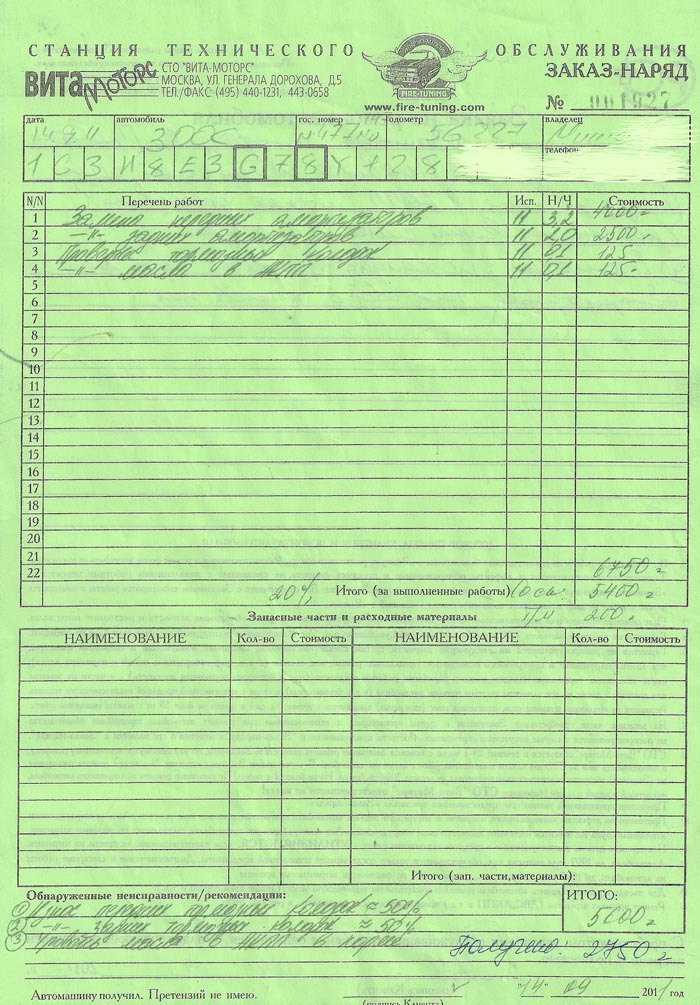 СТАНЦИЯ ТЕХНИЧЕСКОГО ОБСЛУЖИВАНИЯ
ВИТА МОТОРС
СТО "ВИТА-МОТОРС"
МОСКВА, УЛ. ГЕНЕРАЛА ДОРОХОВА, Д.5
ТЕЛ./ФАКС: (495) 440-1231, 443-0658
FIRE-TUNING
www.fire-tuning.com
ЗАКАЗ-НАРЯД
№ 001927
дата автомобиль гос. номер одометр владелец
14.9.11 300C 56227
телефон
1 C 3 H 8 E 3 G 7 8 Y 1 2 8
N/N Перечень работ Исп. Н/Ч Стоимость
1 Замена передних амортизаторов И 3,2 4000=
2 -"- задних амортизаторов И 2,0 2500=
3 Проверка тормозных колодок И 0,1 125=
4 -"- масла в И 0,1 125=
5
6
7
8
9
10
11
12
13
14
15
16
17
18
19
20
21
22 6750=
20% Итого (за выполненные работы) 5400=
Запасные части и расходные материалы 200=
НАИМЕНОВАНИЕ Кол-во Стоимость НАИМЕНОВАНИЕ Кол-во Стоимость
Итого (зап. части,материалы):
Обнаруженные неисправности/рекомендации:
ИТОГО:
1 Износ передних тормозных колодок ≈ 50%
5600=
2 -"- задних тормозных колодок ≈ 50%
3 Уровень масла в в норме
Получено: 2750=
Автомашину получил. Претензий не имею.
"14" 09 2011 год
(подпись Клиента)